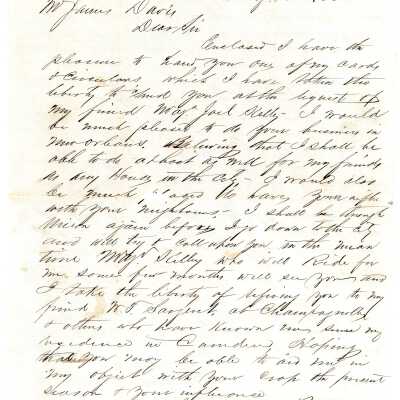 Mr James Davis
Dear Sir
Enclosed I have the
pleasure to hand you one of my cards
& Circulars, which I have taken the
liberty to send you at the request of
my friend Maj Joel Kelly - I would
be much pleased to do your business in
New Orleans, believing that I shall be
able to do at least as well for my friends
as any House in the City - I would also
be much have your
with your neighbours - I shall be through
again before I go down to the City
and will try & call upon you, in the mean
time Maj Kelly who will Ride for
me some few months will see you and
I take the liberty of refering you to my
friend Sargent, at Champagnolle
& others who have known me since my
residence in Camden, Hoping
that you may be able to aid me in
my object with your crop the present
season & your influence